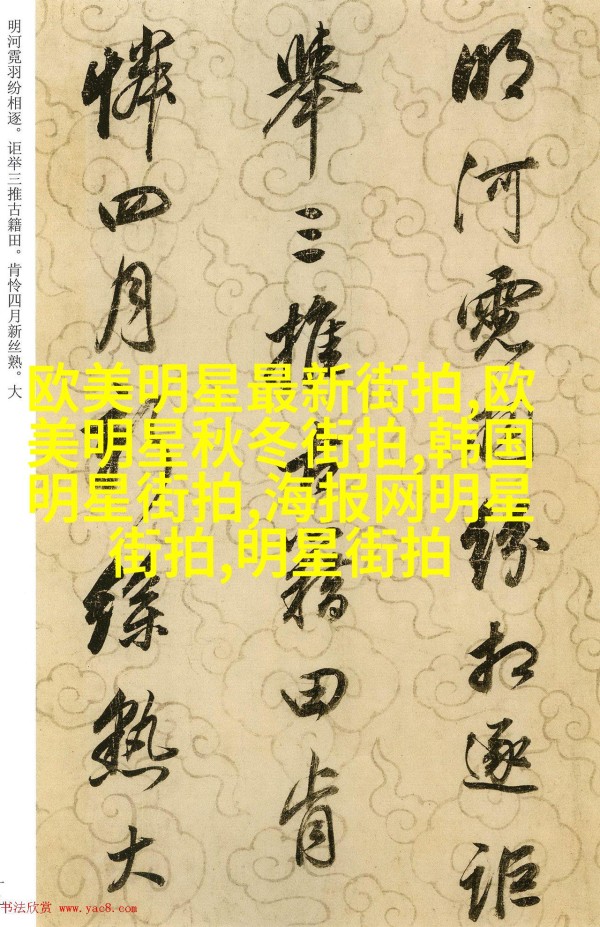 明河霓羽紛相逐詎
舉三推古籍田肯
憐四月新絲熟大
明河霓羽纷相逐。讵举三推古籍田。肯怜四月新丝熟。大
欧美明星最新街拍,欧
美明星秋冬街拍,韩国
明星街拍,海报网明星
街拍,明星街拍
书法欣赏 www.yac8.com